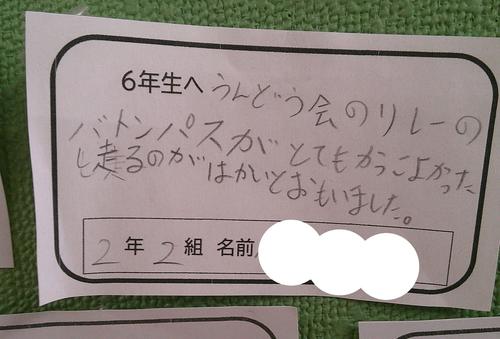 6年生へ うんどう会のリレーの
バトンパスがとてもかっこよかった
し走るのがはかいとおもいました。
2年2組 名前